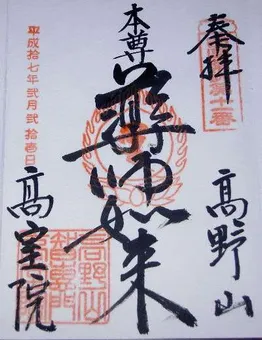 奉拝
第十一番
高野山
本尊
薬師如来
平成拾七年弐月弐拾壱日
高室院